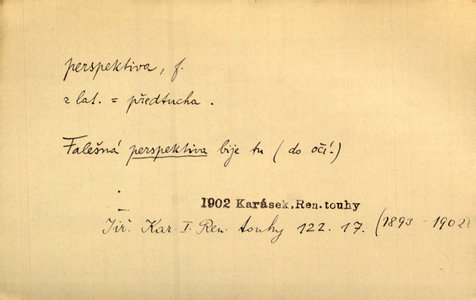 perspektiva, f.
z lat. = předtucha.
Falešná perspektiva bije tu (do očí.)
1902 Karásek, Ren. touhy
Jiř. Kar. I. Ren. touhy 122. 17. (1893 - 1902)